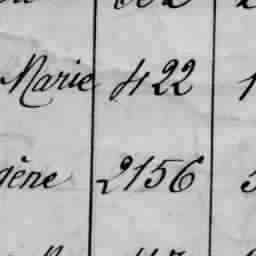 Marie 422 1
gène 2156